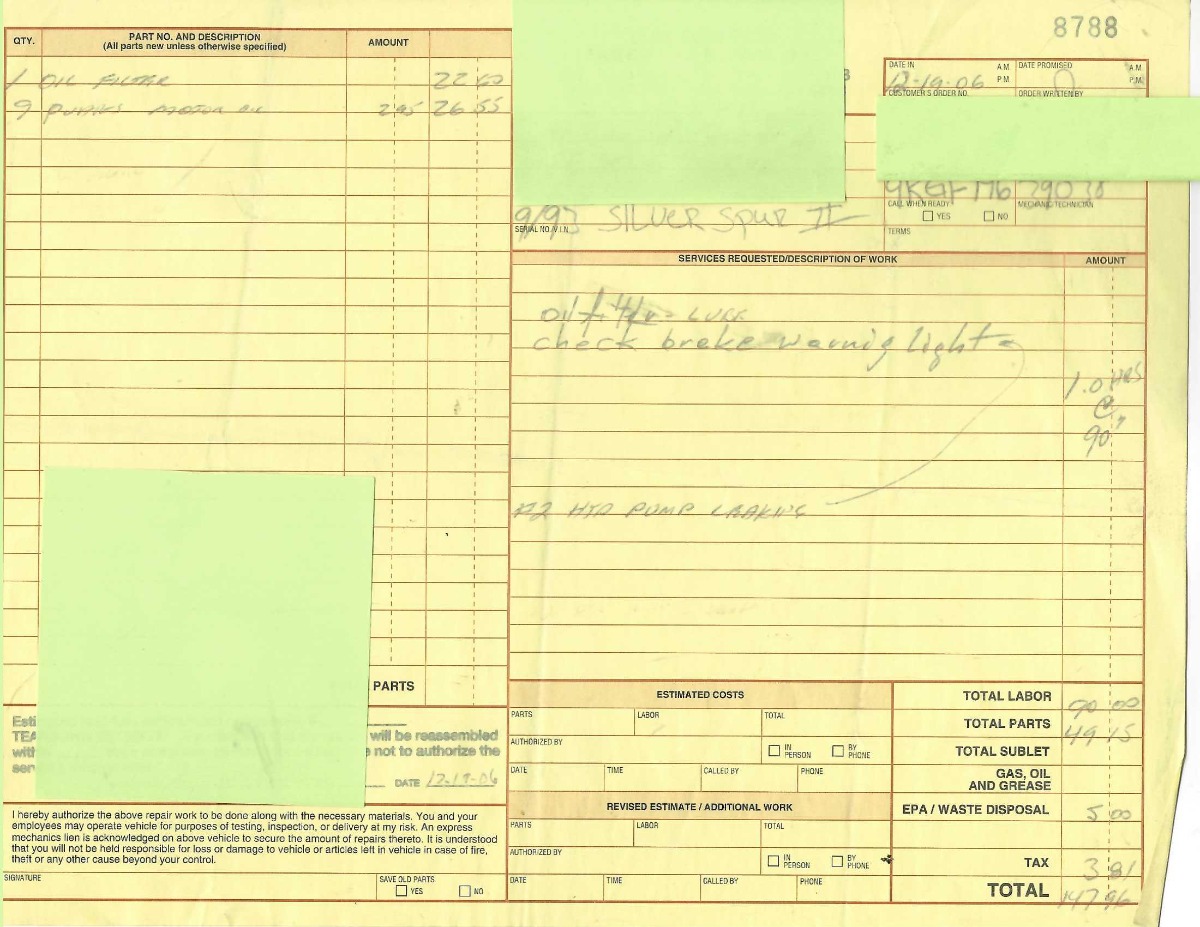 8788
QTY. PART NO. AND DESCRIPTION (All parts new unless otherwise specified) AMOUNT
1 OIL FILTER 22 60
9 QUARTS MOTOR OIL 295 26 55
DATE IN 12-19-06 A.M. P.M.
DATE PROMISED A.M. P.M.
CUSTOMER'S ORDER NO.
ORDER WRITTEN BY
CALL WHEN READY YES NO
MECHANIC/TECHNICIAN
9/93 SILVER SPUR II
SERIAL NO./V.I.N.
TERMS
SERVICES REQUESTED/DESCRIPTION OF WORK AMOUNT
oil filter - LUBE
check brake warnig light
1.0 HRS
@
90"
#2 HYD PUMP LEAKING
PARTS
Esti
TEA will be reassembled
with not to authorize the
ser
DATE 12-19-06
I hereby authorize the above repair work to be done along with the necessary materials. You and your
employees may operate vehicle for purposes of testing, inspection, or delivery at my risk. An express
mechanics lien is acknowledged on above vehicle to secure the amount of repairs thereto. It is understood
that you will not be held responsible for loss or damage to vehicle or articles left in vehicle in case of fire,
theft or any other cause beyond your control.
SIGNATURE
SAVE OLD PARTS YES NO
ESTIMATED COSTS
PARTS LABOR TOTAL
AUTHORIZED BY IN PERSON BY PHONE
DATE TIME CALLED BY PHONE
REVISED ESTIMATE / ADDITIONAL WORK
PARTS LABOR TOTAL
AUTHORIZED BY IN PERSON BY PHONE
DATE TIME CALLED BY PHONE
TOTAL LABOR 90 00
TOTAL PARTS 49 15
TOTAL SUBLET
GAS, OIL AND GREASE
EPA / WASTE DISPOSAL 5 00
TAX 3 81
TOTAL 147 96